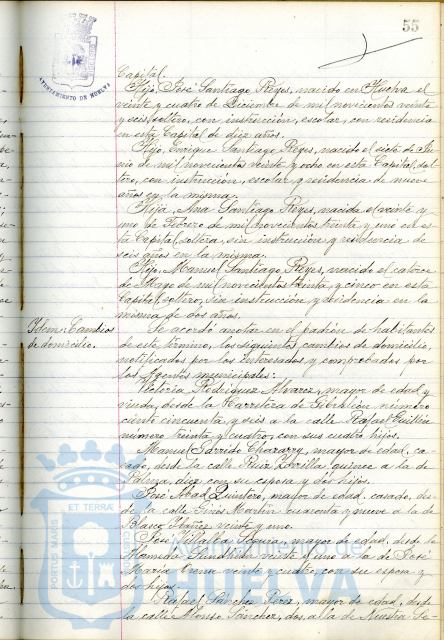 55
AYUNTAMIENTO DE HUELVA
Capital.
Hijo, José Santiago Reyes, nacido en Huelva el
veinte y cuatro de Diciembre de mil novecientos veinte
y seis, soltero, con instrucción, escolar, con residencia
en esta Capital de diez años.
Hijo, Enrique Santiago Reyes, nacido el siete de Ju-
nio de mil novecientos veinte y ocho en esta Capital, sol-
tero, con instrucción, escolar y residencia de nueve
años en la misma.
Hija, Ana Santiago Reyes, nacida el veinte y
uno de Febrero de mil novecientos treinta y uno en es-
ta Capital, soltera, sin instrucción y residencia de
seis años en la misma.
Hijo, Manuel Santiago Reyes, nacido el catorce
de Mayo de mil novecientos treinta y cinco en esta
Capital, soltero, sin instrucción y residencia en la
misma de dos años.
Idem: Cambios
de domicilio.
Se acordó anotar en el padrón de habitantes
de este término, los siguientes cambios de domicilio,
notificados por los interesados y comprobados por
los Agentes municipales:
Victoria Rodríguez Alvarez, mayor de edad y
viuda, desde la Carretera de Gibraleón número
ciento cincuenta y seis a la calle Rafael Guillén
número treinta y cuatro, con sus cuatro hijos.
Manuel Garrido, mayor de edad, ca-
sado, desde la calle Ruiz Zorrilla quince a la de
Palma, con su esposa y dos hijos.
José Abad Quintero, mayor de edad, casado, des-
de la calle Ginés Martín cuarenta y nueve a la de
Blasco Ibáñez veinte y uno.
José Villalba, mayor de edad, desde
veinte y uno a la de José
María veinte y cuatro, con su esposa y
dos hijos.
Rafael Sánchez Pérez, mayor de edad, desde
la calle Alonso Sánchez, dos, a la de Nuestra Se-
PORTUS MARIS ET TERRAE
HUELVA